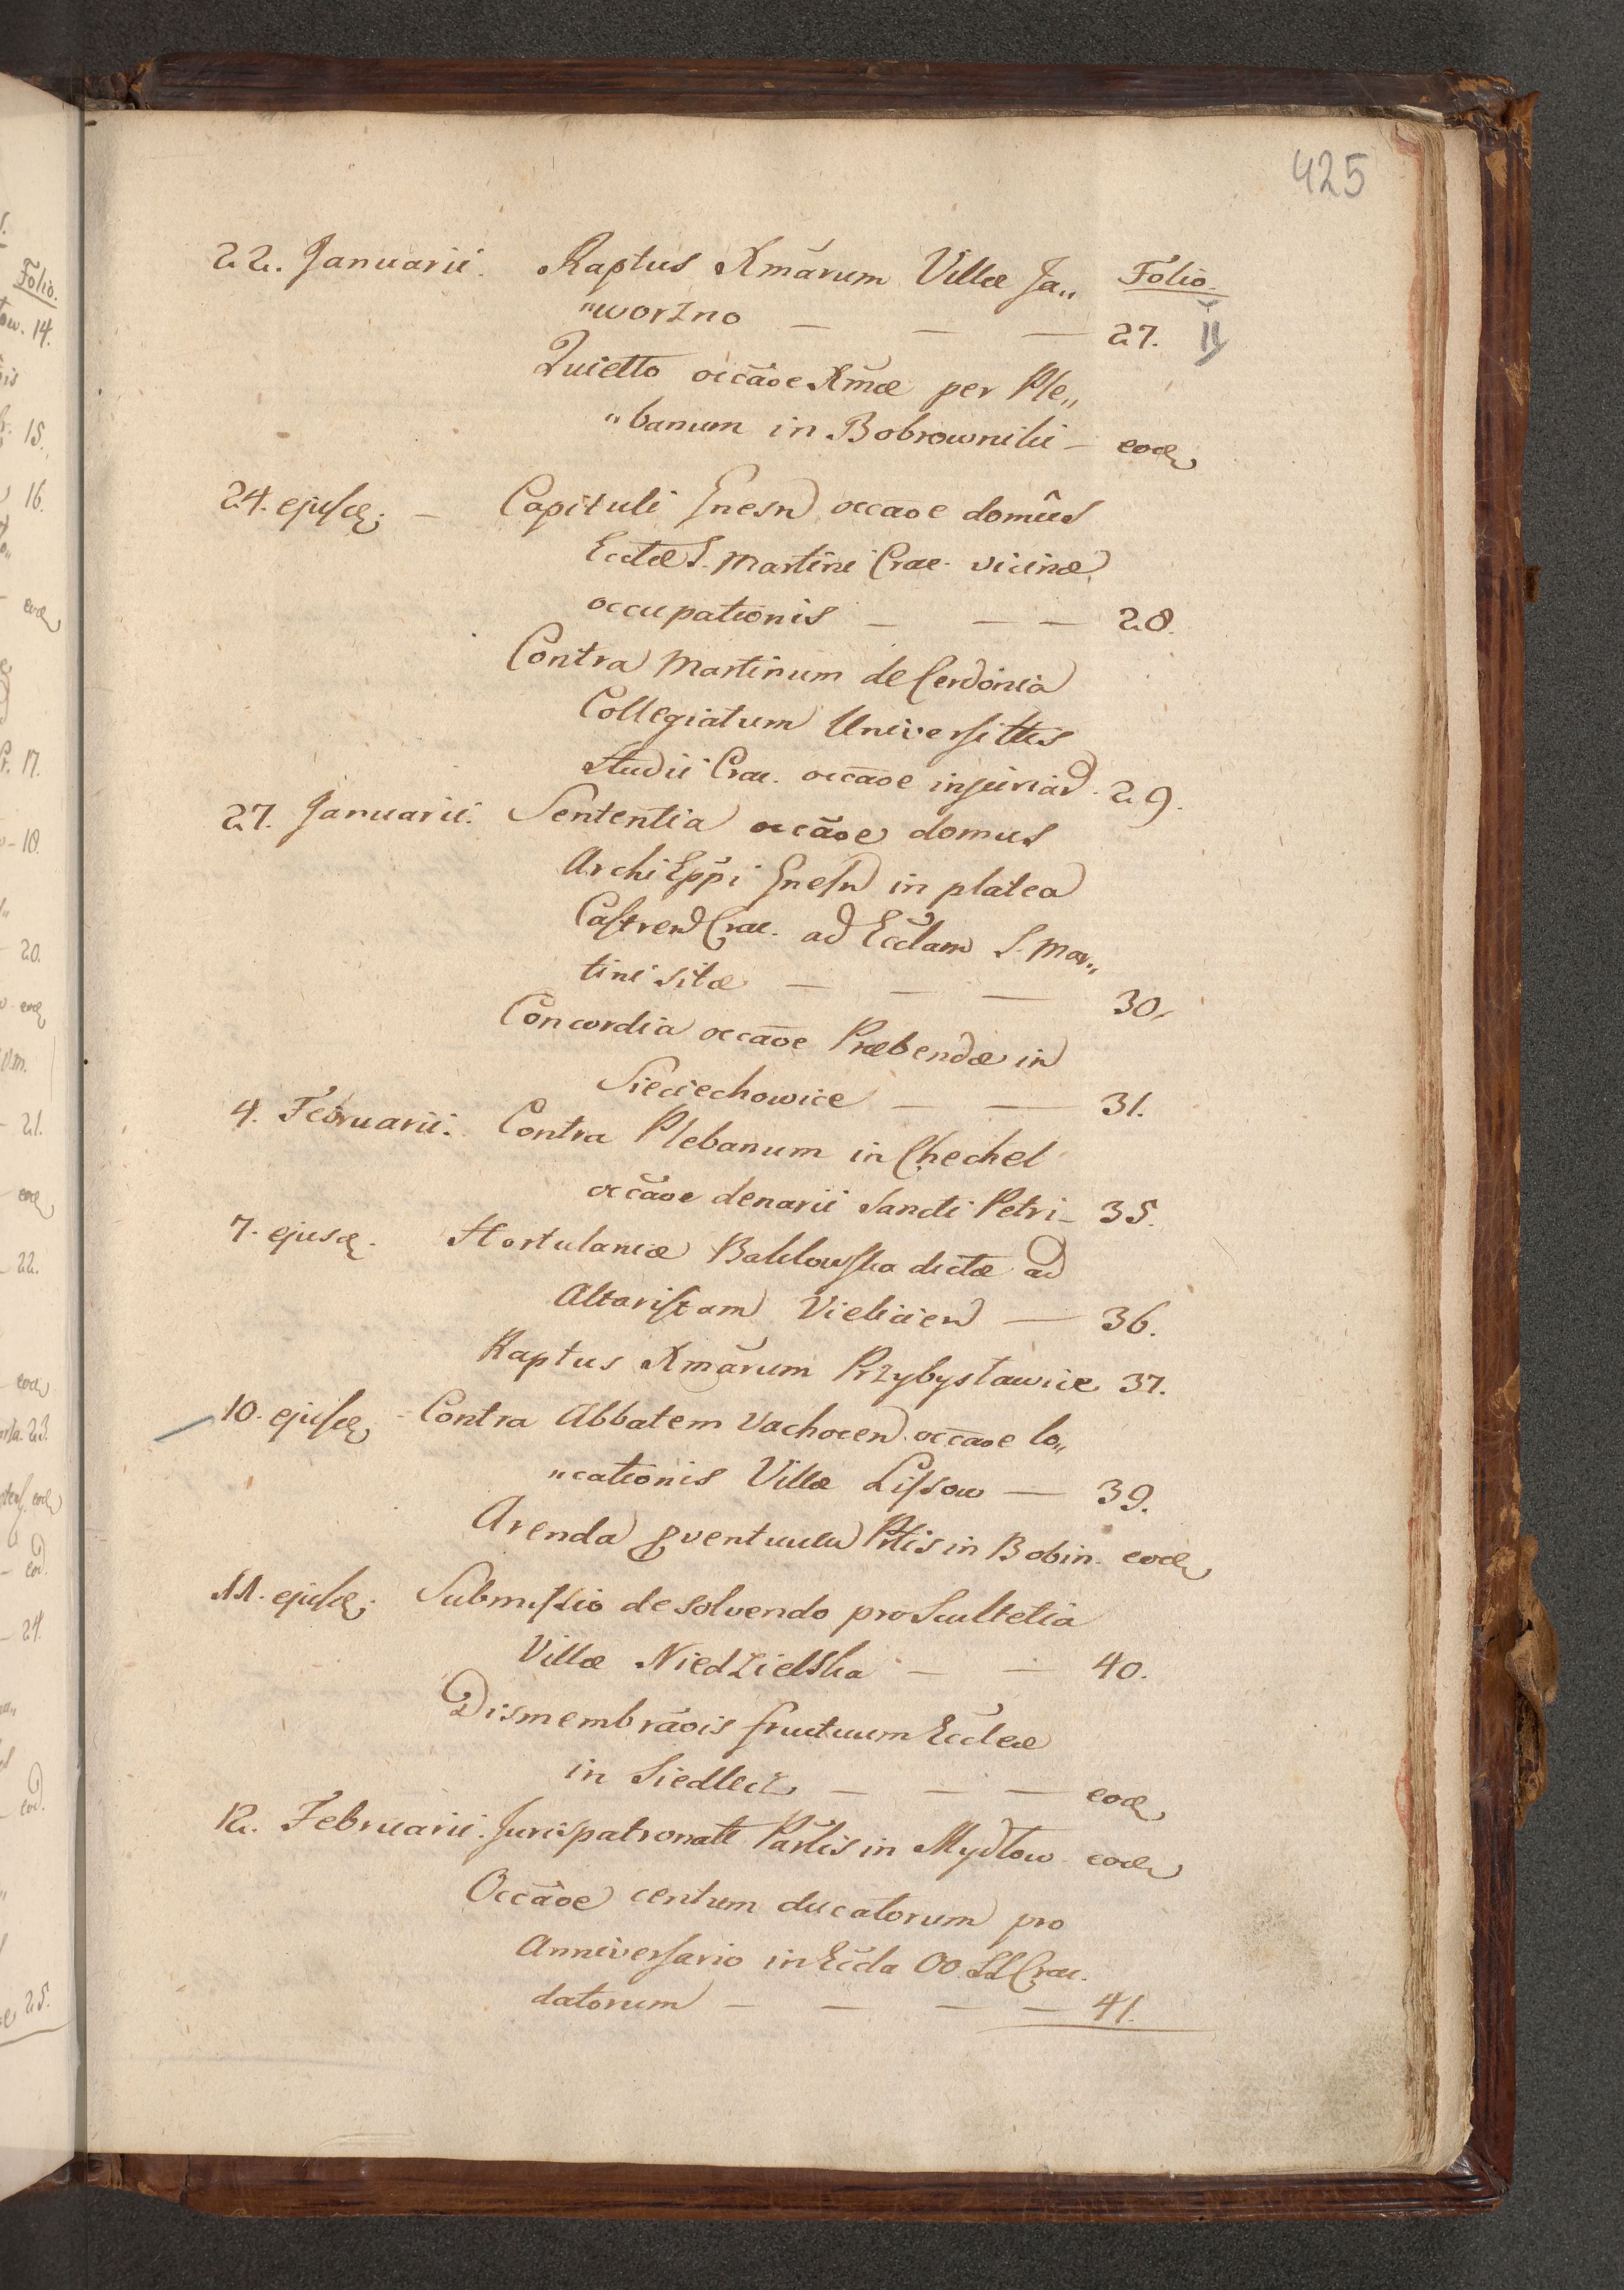 425
22. Januarii. Raptus Kmãrum Villæ Ja„ Folio.
„worzno — — — 27.
Quietto occãoe Kmæ per Ple„
„banum in Bobrowniki — eod
24. ejusd: — Capituli Gnesn occãoe domûs
Ecclæ S. Martini Crac. vicinæ
occupationis — — — 28.
Contra Martinum de Cerdonia
Collegiatum Universittis
Studii Crac. occãoe injuriar. 29.
27. Januarii. Sententia occãoe domus
ArchiEppi Gnesn in platea
Castren Crac. ad Ecclam S. Mar„
tini sitæ — — — 30.
Concordia occãoe Præbendæ in
Sieciechowice — — 31.
4. Februarii. Contra Plebanum in Chechel
occãoe denarii Sancti Petri — 35.
7. ejusd. Hortulaniæ Baklowska dictæ ad
Altaristam Vielicien — 36.
Raptus Kmãrum Przybysławice 37.
10. ejusd - Contra Abbatem Vachocen. occãoe lo„
„cationis Villæ Lissow — 39.
Arenda pventuum Pltis in Bobin. eod
11. ejusd: Submissio de solvendo pro Scultetia
Villæ Niedzielska — — 40.
Dismembrãois fructuum Ecclæ
in Siedlecz — — — eod
12. Februarii. Jurispatronatt Parlis in Mydłow eod
Occãoe centum ducatorum pro
Anniversario in Eccla OO. SS. Crac.
datorum — — — — 41.
Folio.
14.
15.
16.
eod
17.
18.
20.
eod
21.
eod
22.
eod
23.
eod
eod.
24.
eod.
25.